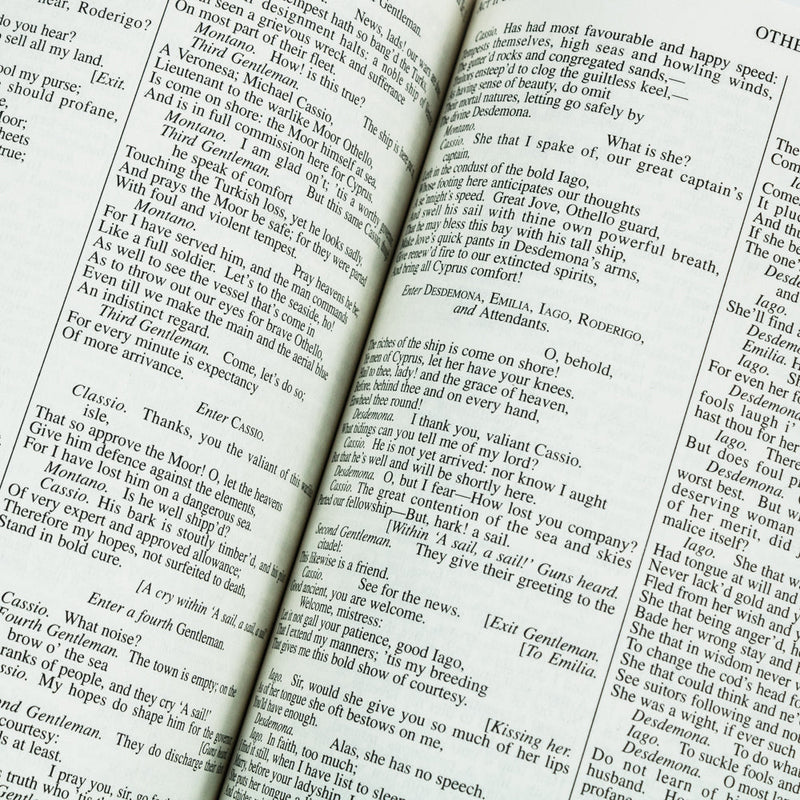 hear, Roderigo?
do you hear?
sell all my land.
[Exit.
ool my purse;
should profane,
Moor;
sheets
true;
News, lads! our wars
tempest hath so bang'd the Turks,
designment halts: a noble ship of
seen a grievous wreck and sufferance
On most part of their fleet.
Montano. How! is this true?
Third Gentleman. The ship is here
A Veronesa; Michael Cassio,
Lieutenant to the warlike Moor Othello,
Is come on shore: the Moor himself at sea,
And is in full commission here for Cyprus.
Montano. I am glad on't; 'tis a worthy
Third Gentleman. But this same Cassio,
he speak of comfort
Touching the Turkish loss, yet he looks sadly
And prays the Moor be safe; for they were parted
With foul and violent tempest.
Montano. Pray heavens he be;
For I have served him, and the man commands
Like a full soldier. Let's to the seaside, ho!
As well to see the vessel that's come in
As to throw out our eyes for brave Othello,
Even till we make the main and the aerial blue
An indistinct regard.
Third Gentleman. Come, let's do so;
For every minute is expectancy
Of more arrivance.
Enter CASSIO.
Classio. Thanks, you the valiant of this
isle,
That so approve the Moor! O, let the heavens
Give him defence against the elements,
For I have lost him on a dangerous sea.
Montano. Is he well shipp'd?
Cassio. His bark is stoutly timber'd, and his
Of very expert and approved allowance;
Therefore my hopes, not surfeited to death,
Stand in bold cure.
[A cry within 'A sail, a sail, a sail!'
Enter a fourth Gentleman.
Cassio. What noise?
Fourth Gentleman. The town is empty; on the
brow o' the sea
ranks of people, and they cry 'A sail!'
My hopes do shape him for the
[Guns
Gentleman. They do discharge their
courtesy:
at least.
I pray you, sir, go
truth who 'tis
Cassio. Has had most favourable and happy speed:
Tempests themselves, high seas and howling winds,
gutter'd rocks and congregated sands,—
ensteep'd to clog the guiltless keel,—
having sense of beauty, do omit
Their mortal natures, letting go safely by
The divine Desdemona.
Montano. What is she?
Cassio. She that I spake of, our great captain's
captain,
Left in the condust of the bold Iago,
Whose footing here anticipates our thoughts
se'nnight's speed. Great Jove, Othello guard,
And swell his sail with thine own powerful breath,
That he may bless this bay with his tall ship,
Make love's quick pants in Desdemona's arms,
Give renew'd fire to our extincted spirits,
And bring all Cyprus comfort!
Enter DESDEMONA, EMILIA, IAGO, RODERIGO,
and Attendants.
O, behold,
The riches of the ship is come on shore!
Ye men of Cyprus, let her have your knees.
Hail to thee, lady! and the grace of heaven,
Before, behind thee and on every hand,
Enwheel thee round!
Desdemona. I thank you, valiant Cassio.
What tidings can you tell me of my lord?
Cassio. He is not yet arrived: nor know I aught
But that he's well and will be shortly here.
Desdemona. O, but I fear—How lost you company?
Cassio. The great contention of the sea and skies
Parted our fellowship—But, hark! a sail.
[Within 'A sail, a sail!' Guns heard.
Second Gentleman. They give their greeting to the
citadel:
This likewise is a friend.
Cassio. See for the news. [Exit Gentleman.
Good ancient, you are welcome. [To Emilia.
Welcome, mistress:
Let it not gall your patience, good Iago,
That I extend my manners; 'tis my breeding
That gives me this bold show of courtesy.
[Kissing her.
Iago. Sir, would she give you so much of her lips
As of her tongue she oft bestows on me,
You'ld have enough.
Desdemona. Alas, she has no speech.
Iago. In faith, too much;
I find it still, when I have list to sleep
Marry, before your ladyship, I
She puts her tongue
And chides
OTHE
The
Com
Come
It pluc
And thu
If she be
The one
Desd
and
Iago.
She'll find
Desdem
Emilia. H
Iago. S
For even her fo
Desdemona
fools laugh i'
hast thou for her
Iago. There
But does foul p
Desdemona.
worst best. But w
deserving woman
of her merit, did
malice itself?
Iago. She that w
Had tongue at will and
Never lack'd gold and y
Fled from her wish and
She that being anger'd, h
Bade her wrong stay and
She that in wisdom never w
To change the cod's head fo
She that could think and ne'
See suitors following and no
She was a wight, if ever such
Desdemona. To do what
Iago. To suckle fools and
Desdemona. O most lam
Do not learn of him
husband. How
profane